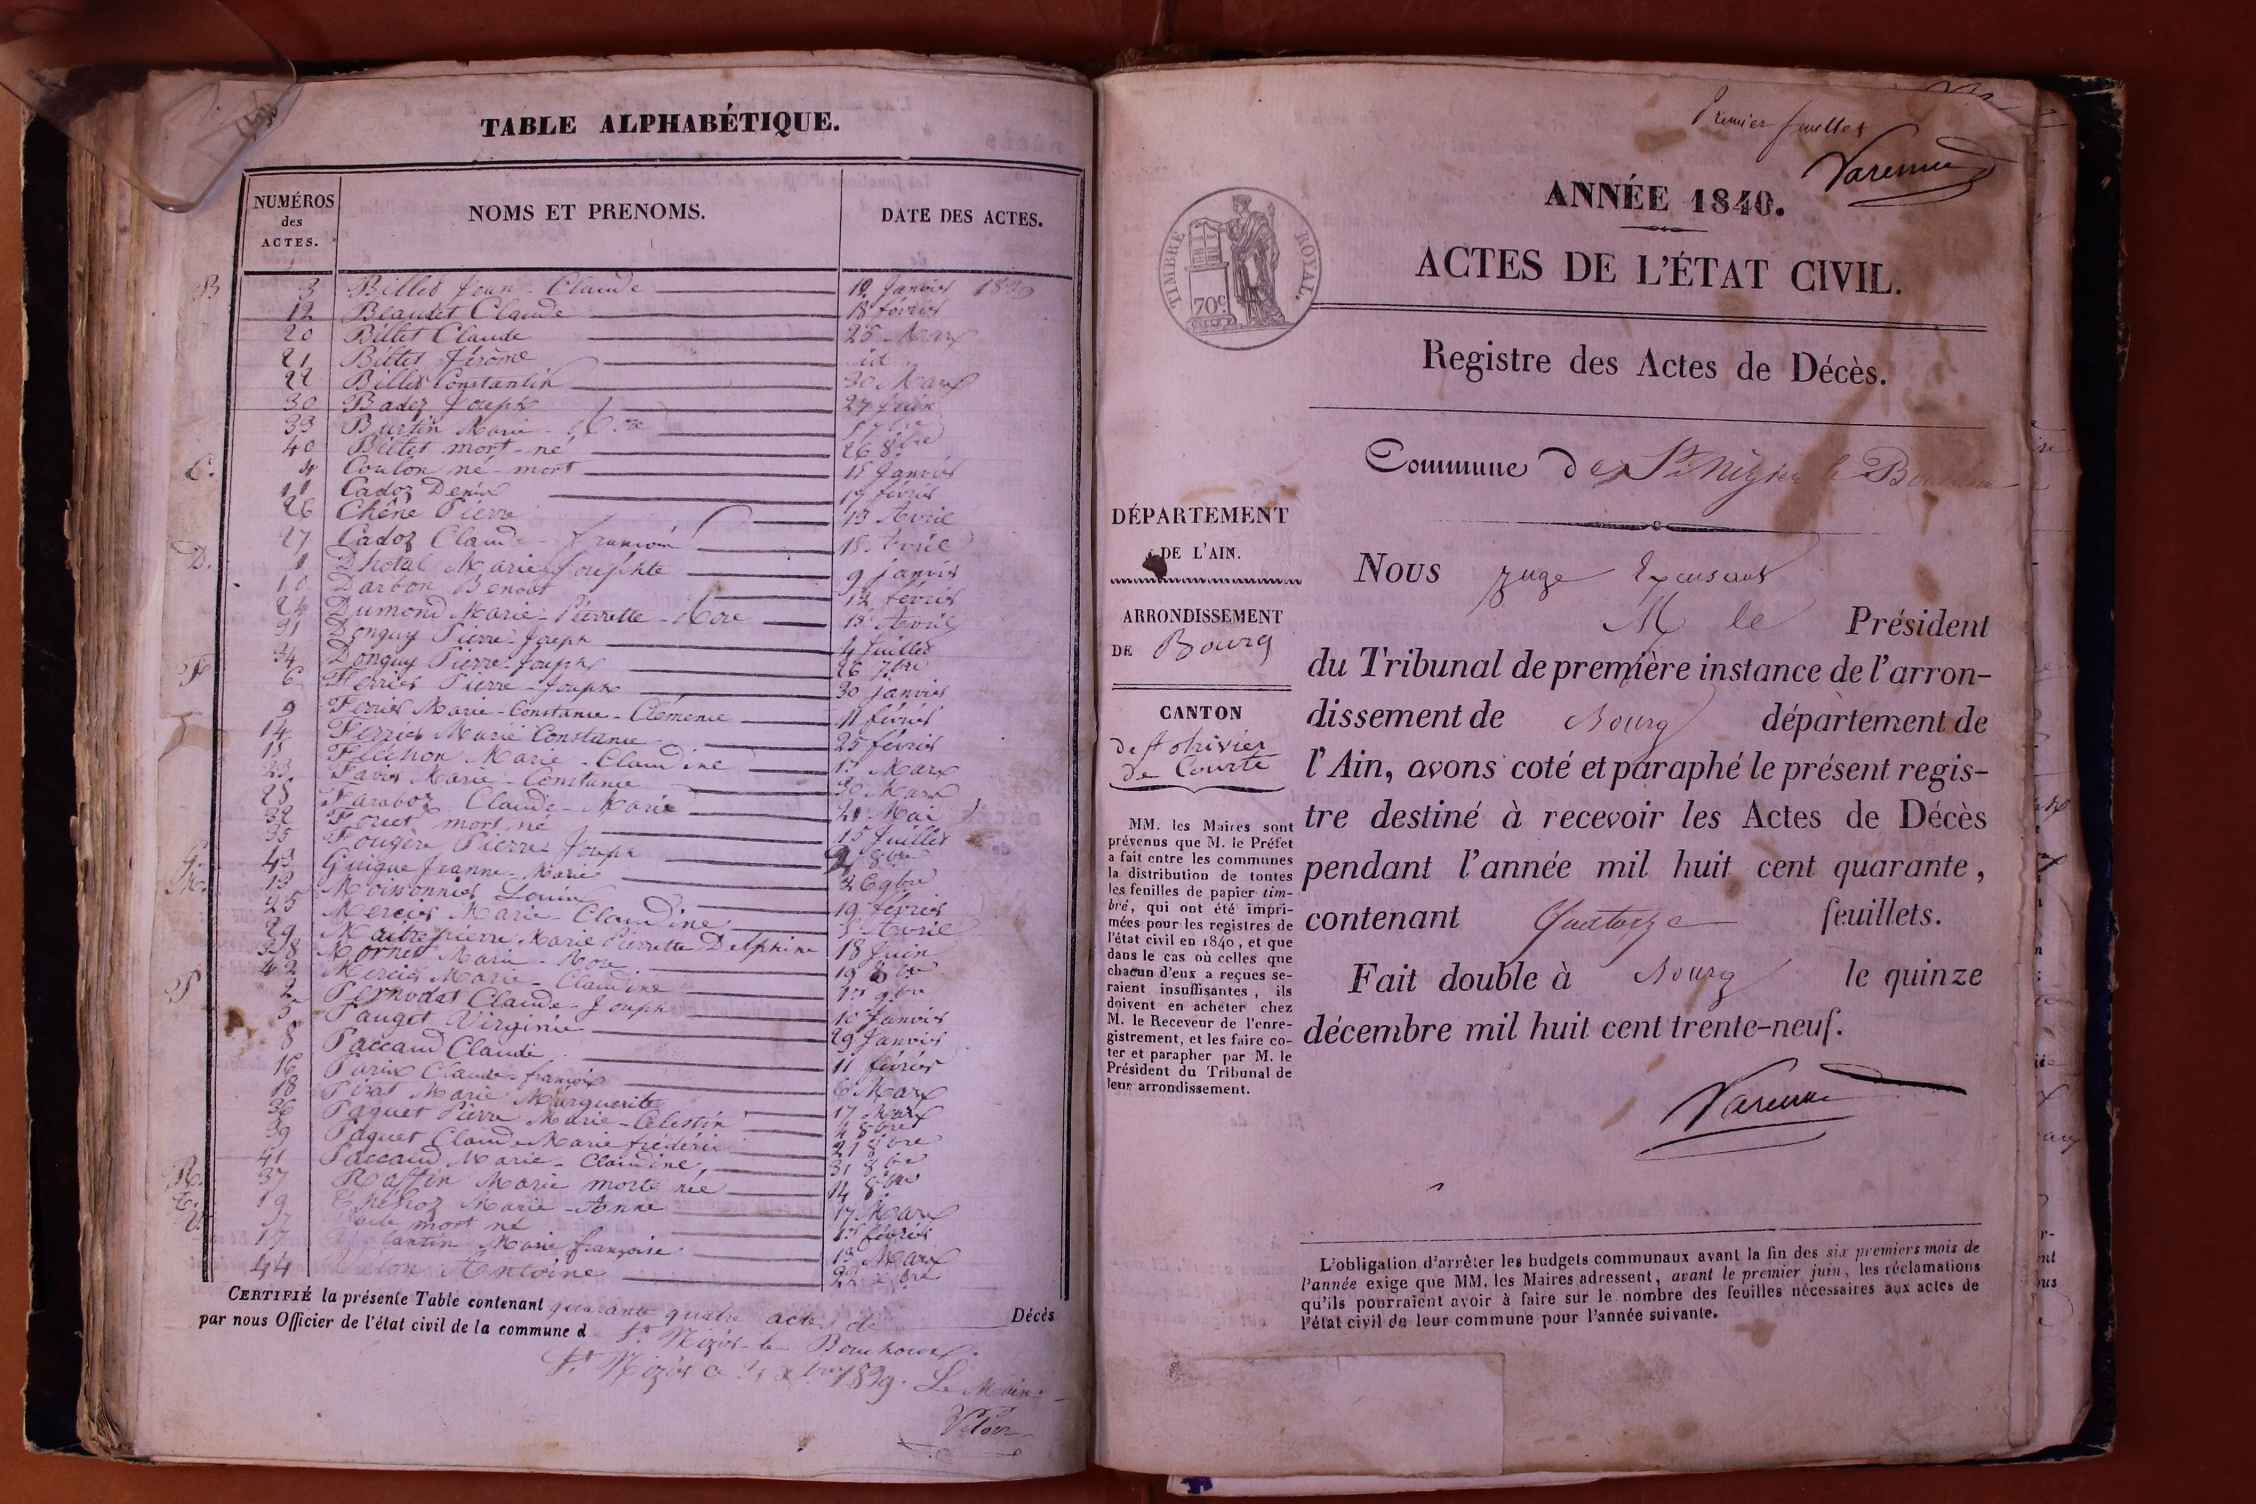 TABLE ALPHABÉTIQUE.
NUMÉROS
des
ACTES.
NOMS ET PRENOMS.
DATE DES ACTES.
B 3 Billet Jean-Claude 12 Janvier 1839
12 Beaudet Claude 18 février
20 Billet Claude 25 Mars
21 Billet Jérôme id
22 Billet Constantin 30 Mars
30 Badez Joseph 27 Juin
33 Burtin Marie
40 Billet mort-né 26 8bre
C. 4 Coulon né-mort 15 Janvier
11 Cadoz Denis 17 février
26 Chêne Pierre 13 Avril
27 Cadoz Claude-françois 18 Avril
D. 1 Dhotal Marie Josephte 9 janvier
10 Darbon Benoit 12 février
24 Dumond Marie-Pierrette-Rose 13 Avril
31 Donguy Pierre-Joseph 4 Juillet
34 Donguy Pierre-Joseph 26 7bre
F 6 Ferrier Pierre-Joseph 30 janvier
9 Ferrier Marie-Constance-Clémence 11 février
14 Ferrier Marie Constance 25 février
15 Félichon Marie-Claudine Mars
23 Favre Marie-Constance 30 Mars
28 Faraboz Claude-Marie 21 Mai
32 mort né 15 Juillet
35 Fougère Pierre Joseph 8bre
G. 43 Guigue Jeanne-Marie 9bre
M. 13 Moissonnier Louise 19 février
25 Mercier Marie-Claudine Avril
29 Maitrepierre Marie Pierrette Delphine 18 Juin
38 Mornet Marie-Rose 19 8bre
42 Mercier Marie-Claudine 9bre
P 2 Pernodat Claude-Joseph 10 Janvier
5 Pauget Virginie 29 Janvier
8 Paccaud Claude 11 février
16 Claude-françois 6 Mars
18 Pirat Marie Marguerite 17 Mars
36 Paquet Pierre Marie-Célestin 4 8bre
39 Paquet Claude Marie frédéric 21 8bre
41 Paccaud Marie-Claudine 31 8bre
R. 37 Raffin Marie morte née 14 8bre
19 Marie-Anne 17 Mars
mort né février
17 Marie françoise 13 Mars
44 Antoine
CERTIFIÉ la présente Table contenant quarante quatre actes de Décès
par nous Officier de l'état civil de la commune d St Nizier-le-Bouchoux.
St Nizier 1839. Le Maire
Premier feuillet
Varenne
ANNÉE 1840.
TIMBRE ROYAL.
70c
ACTES DE L'ÉTAT CIVIL.
Registre des Actes de Décès.
Commune de St Nizier le Bouchoux
DÉPARTEMENT
DE L'AIN.
ARRONDISSEMENT
DE Bourg
CANTON
de St trivier
de Courte
MM. les Maires sont
prévenus que M. le Préfet
a fait entre les communes
la distribution de toutes
les feuilles de papier tim-
bré, qui ont été impri-
mées pour les registres de
l'état civil en 1840, et que
dans le cas où celles que
chacun d'eux a reçues se-
raient insuffisantes, ils
doivent en acheter chez
M. le Receveur de l'enre-
gistrement, et les faire co-
ter et parapher par M. le
Président du Tribunal de
leur arrondissement.
Nous juge Excusant
M le Président
du Tribunal de première instance de l'arron-
dissement de Bourg département de
l'Ain, avons coté et paraphé le présent regis-
tre destiné à recevoir les Actes de Décès
pendant l'année mil huit cent quarante,
contenant Quatorze feuillets.
Fait double à Bourg le quinze
décembre mil huit cent trente-neuf.
Varenne
L'obligation d'arrêter les budgets communaux avant la fin des six premiers mois de
l'année exige que MM. les Maires adressent, avant le premier juin, les réclamations
qu'ils pourraient avoir à faire sur le nombre des feuilles nécessaires aux actes de
l'état civil de leur commune pour l'année suivante.